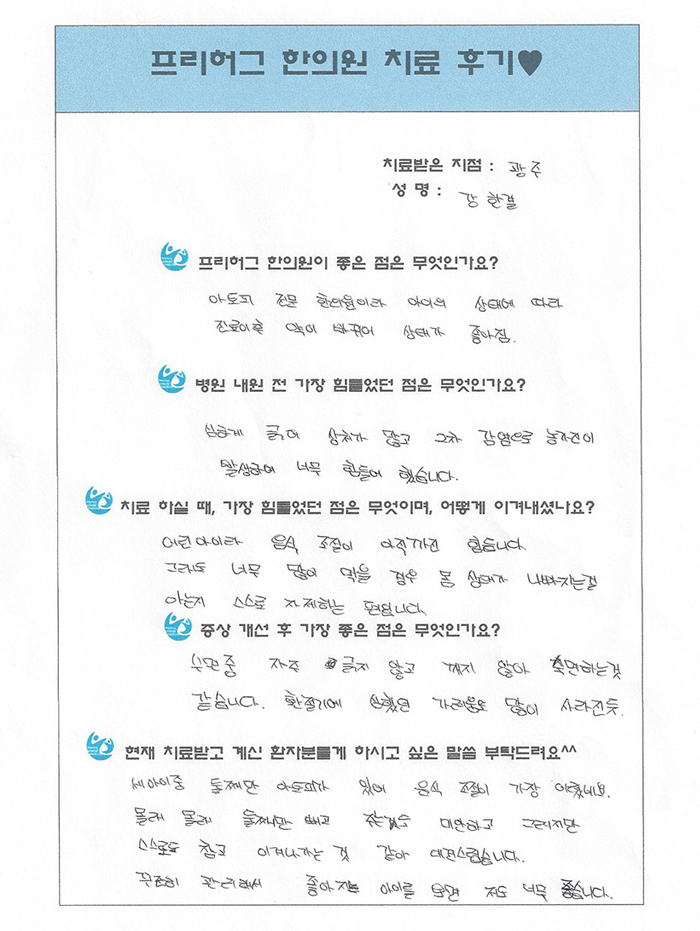 프리허그 한의원 치료 후기♥
치료받은 지점 : 광주
성 명 : 강한결
프리허그 한의원이 좋은 점은 무엇인가요?
아토피 전문 한의원이라 아이의 상태에 따라
진료이후 약이 바뀌어 상태가 좋아짐.
병원 내원 전 가장 힘들었던 점은 무엇인가요?
심하게 긁어 상처가 많고 2차 감염으로 농가진이
발생하여 너무 힘들어 했습니다.
치료 하실 때, 가장 힘들었던 점은 무엇이며, 어떻게 이겨내셨나요?
어린아이라 음식 조절이 아직까진 힘듭니다
그래도 너무 많이 먹을 경우 몸 상태가 나빠지는걸
아는지 스스로 자제하는 편입니다.
증상 개선 후 가장 좋은 점은 무엇인가요?
수면중 자주 긁지 않고 깨지 않아 숙면하는것
같습니다. 환절기에 심했던 가려움도 많이 사라진듯.
현재 치료받고 계신 환자분들게 하시고 싶은 말씀 부탁드려요^^
세아이중 둘째만 아토피가 있어 음식 조절이 가장 어렵네요.
몰래 몰래 둘째만 빼고 주는것도 미안하고 그러지만
스스로도 참고 이겨나가는 것 같아 대견스럽습니다.
꾸준히 관리해서 좋아지는 아이를 보면 저도 너무 좋습니다.